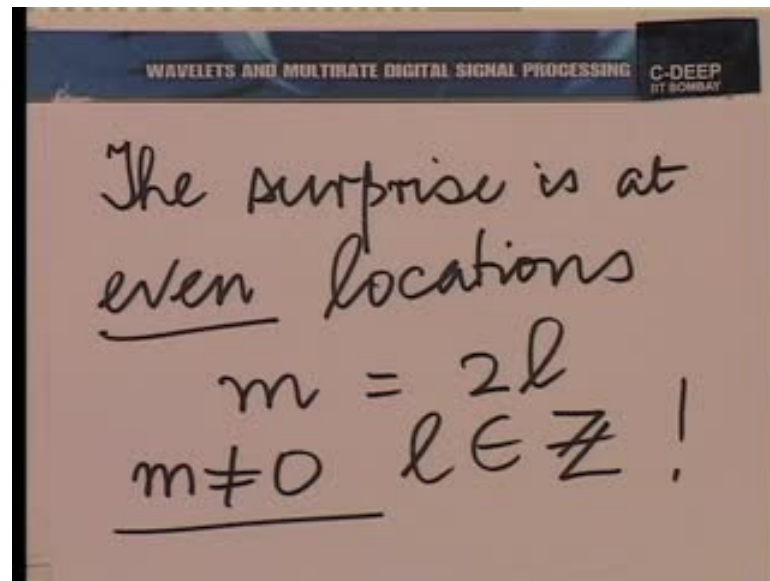 WAVELETS AND MULTIRATE DIGITAL SIGNAL PROCESSING
C-DEEP
IIT BOMBAY
The surprise is at
even locations
m = 2l
m≠0 l∈ℤ !